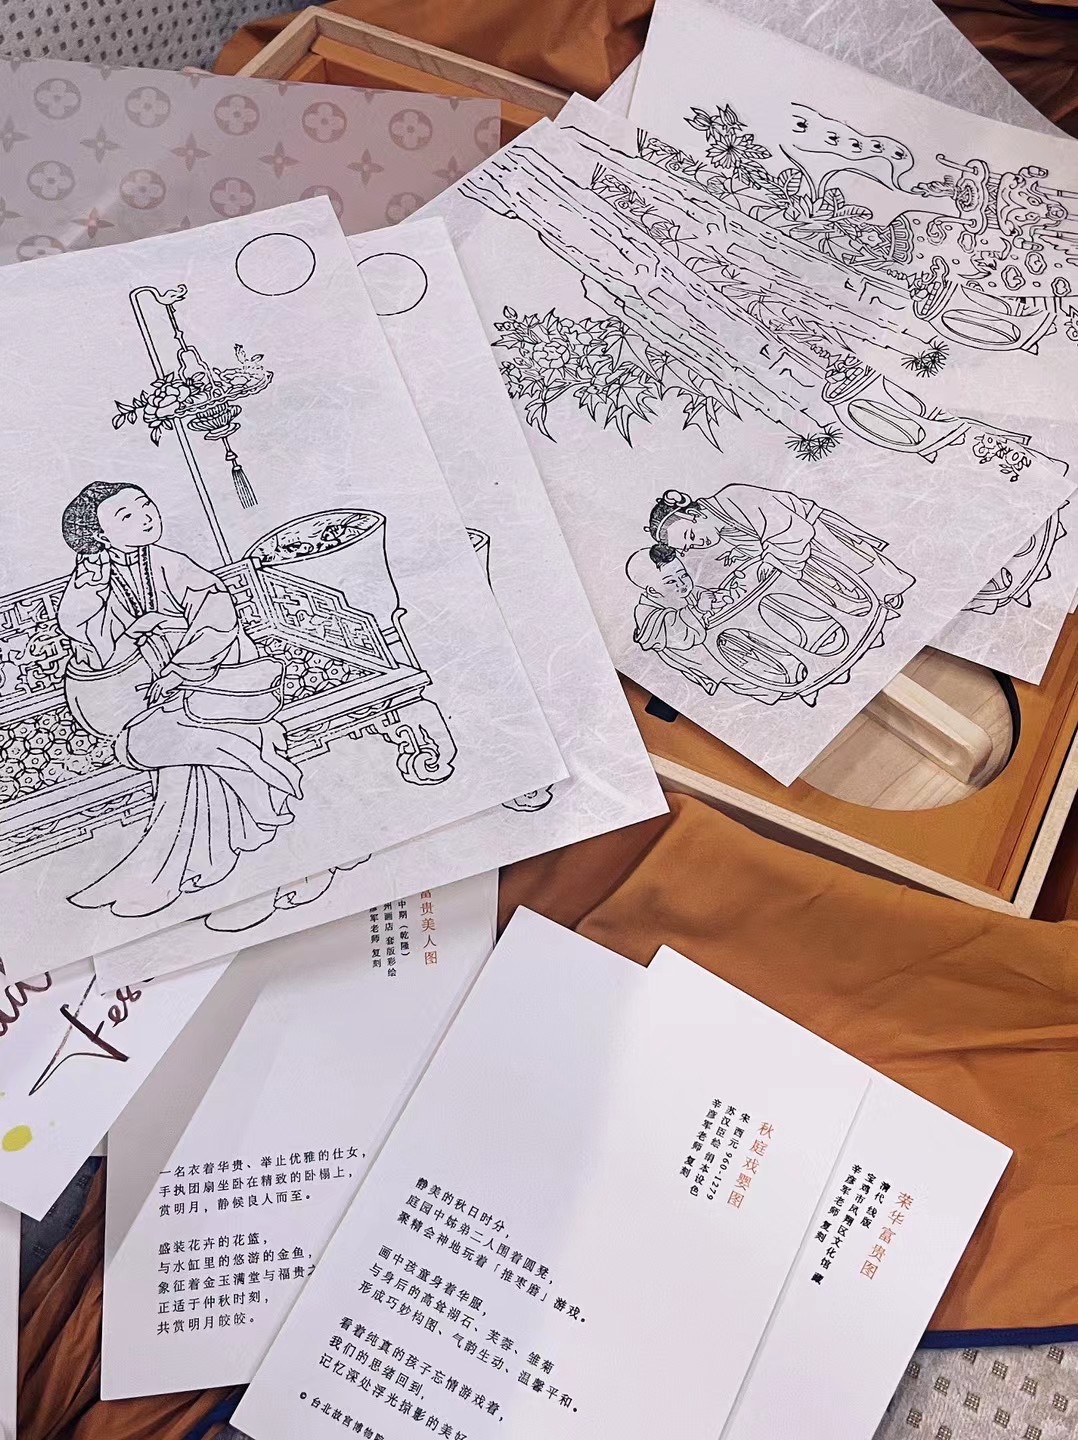 富贵美人图
中期（乾隆）
州画店 套版彩绘
彦军老师 复刻
一名衣着华贵、举止优雅的仕女，
手执团扇坐卧在精致的卧榻上，
赏明月，静候良人而至。
盛装花卉的花篮，
与水缸里的悠游的金鱼，
象征着金玉满堂与福贵
正适于仲秋时刻，
共赏明月皎皎。
秋庭戏婴图
宋 西元 960-1279
苏汉臣绘 绢本设色
辛彦军老师 复刻
静美的秋日时分，
庭园中姊弟二人围着圆凳，
聚精会神地玩着「推枣磨」游戏。
画中孩童身着华服，
与身后的高耸湖石、芙蓉、雏菊
形成巧妙构图、气韵生动、温馨平和。
看着纯真的孩子忘情游戏着，
我们的思绪回到，
记忆深处浮光掠影的美好
© 台北故宫博物院
荣华富贵图
清代 线版
宝鸡市凤翔区文化馆 藏
辛彦军老师 复刻
Fes